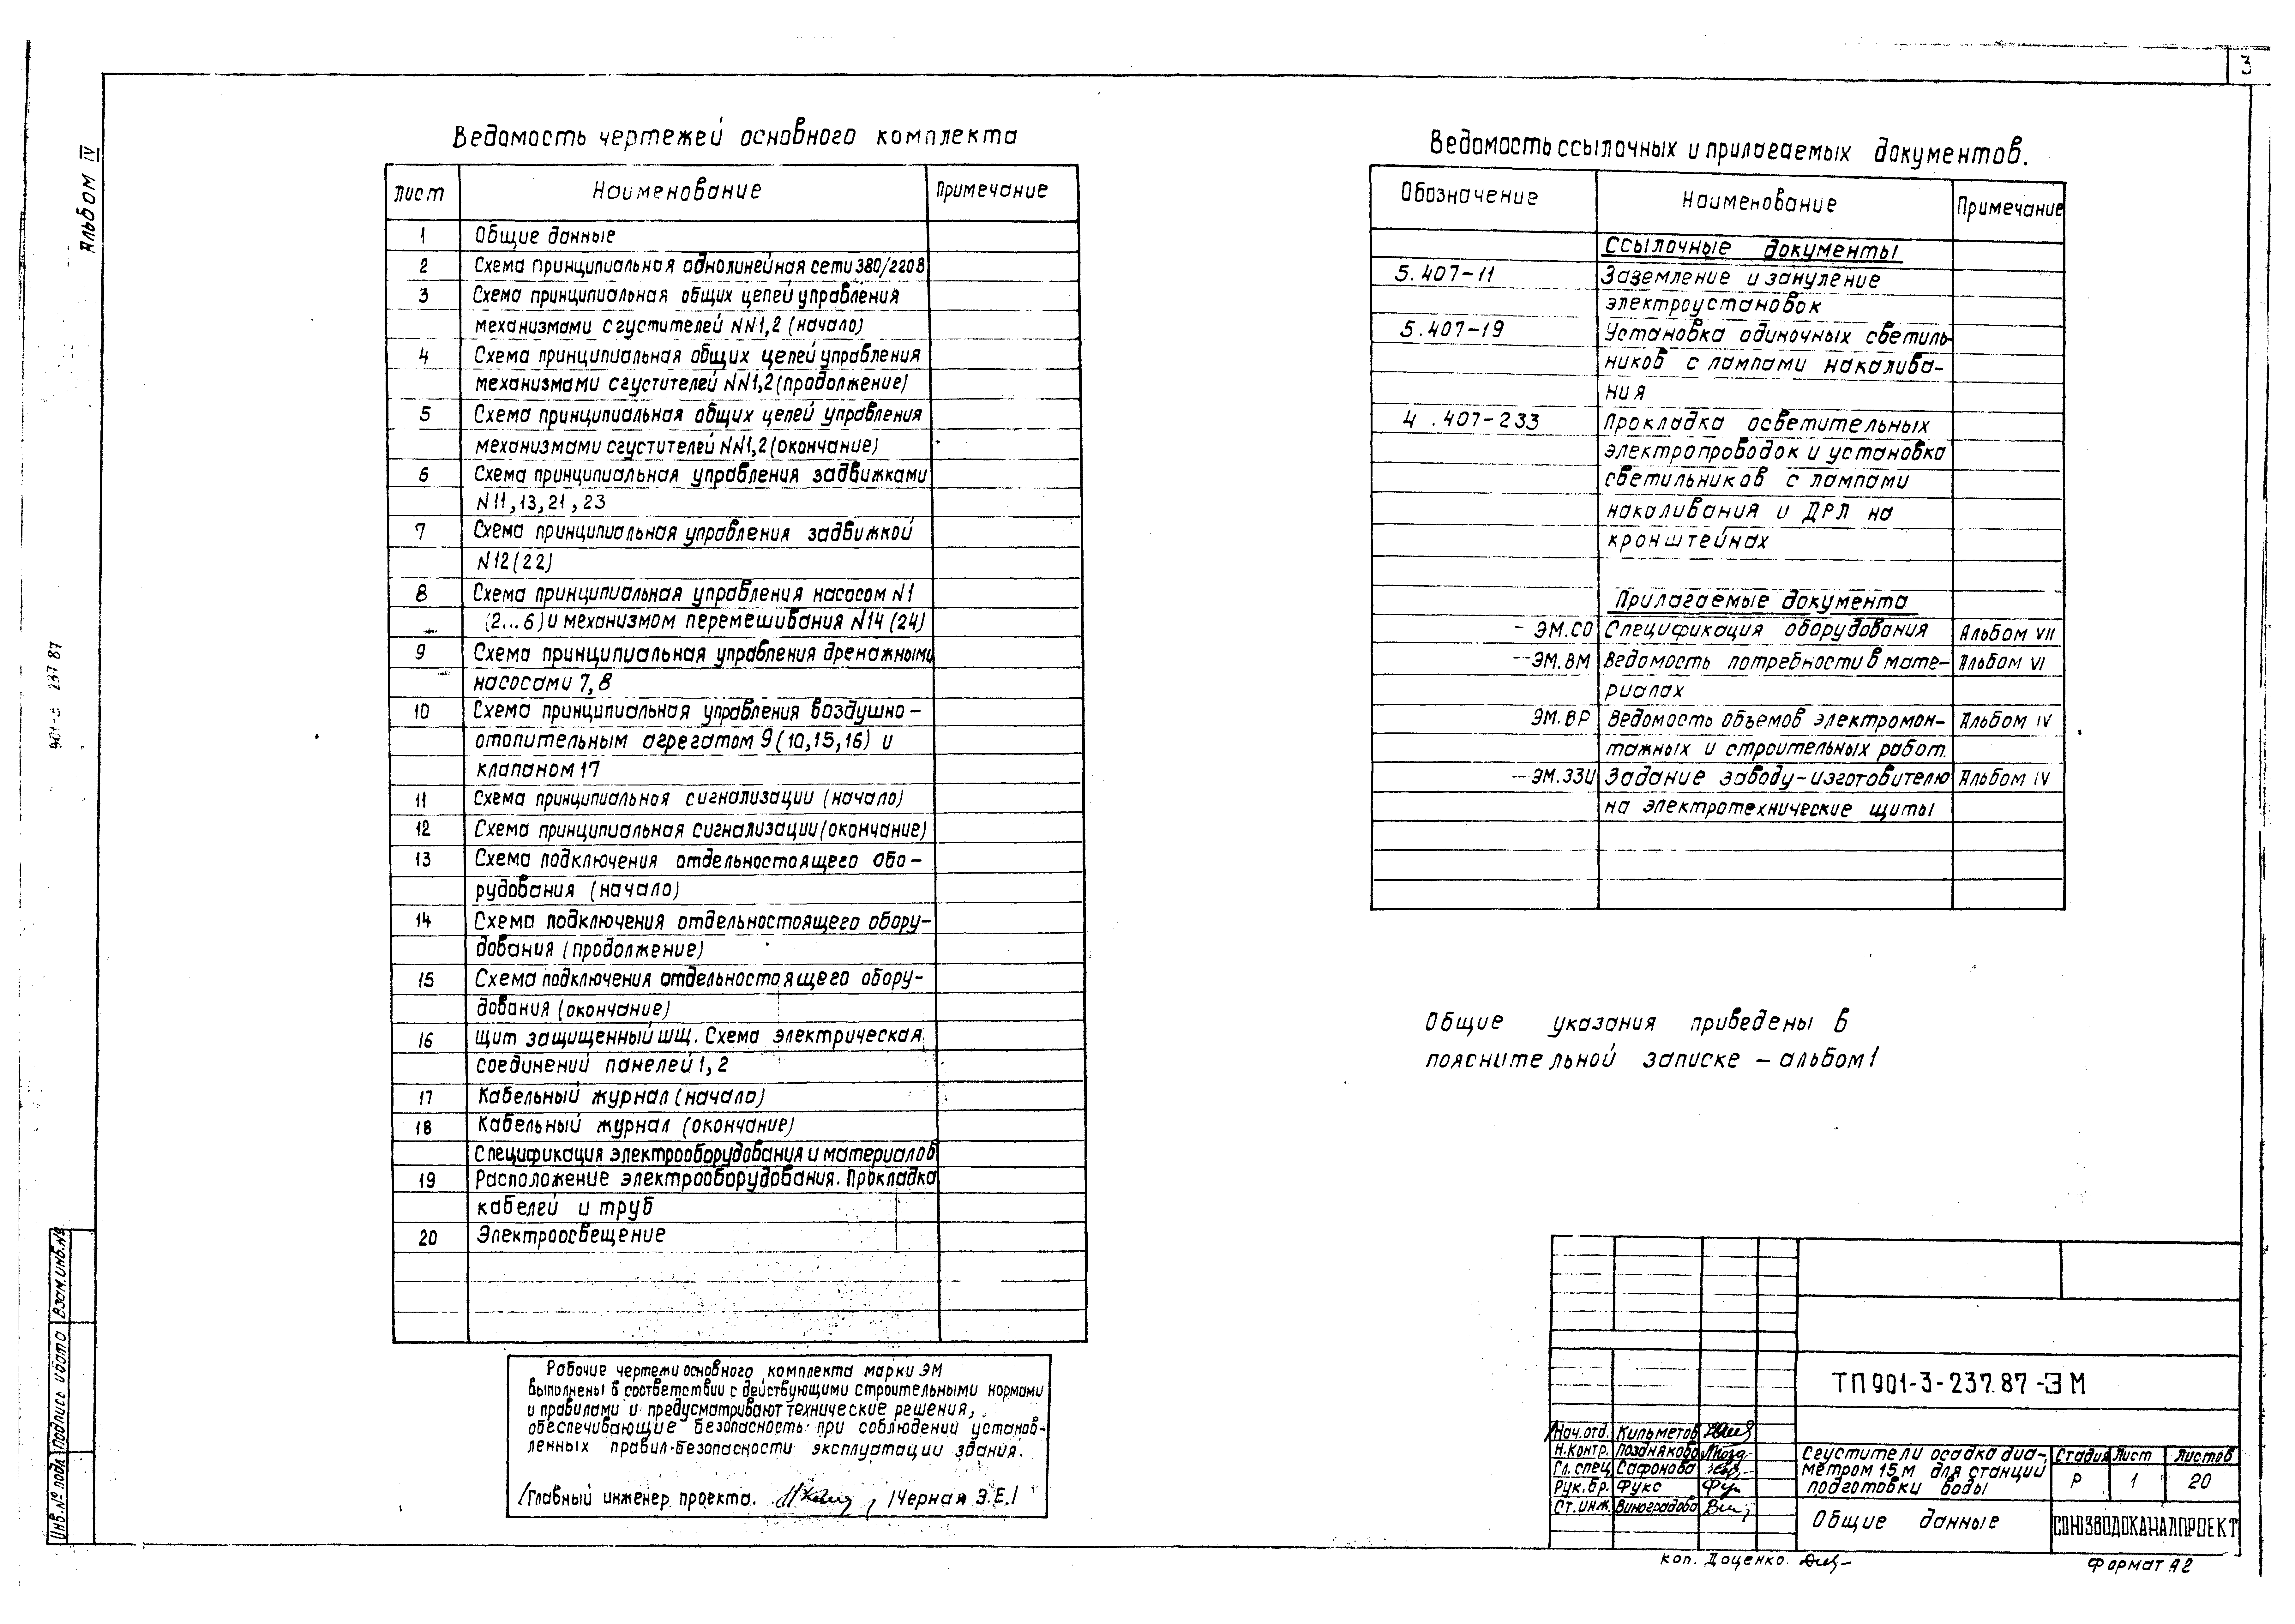 3
Альбом IV
901-3-237.87
Ведомость чертежей основного комплекта
Лист Наименование Примечание
1 Общие данные
2 Схема принципиальная однолинейная сети 380/220В
3 Схема принципиальная общих цепей управления
механизмами сгустителей NN1,2 (начало)
4 Схема принципиальная общих цепей управления
механизмами сгустителей NN1,2 (продолжение)
5 Схема принципиальная общих цепей управления
механизмами сгустителей NN1,2 (окончание)
6 Схема принципиальная управления задвижками
N11,13,21,23
7 Схема принципиальная управления задвижкой
N12(22)
8 Схема принципиальная управления насосом N1
(2...6) и механизмом перемешивания N14 (24)
9 Схема принципиальная управления дренажными
насосами 7,8
10 Схема принципиальная управления воздушно-
отопительным агрегатом 9(10,15,16) и
клапаном 17
11 Схема принципиальная сигнализации (начало)
12 Схема принципиальная сигнализации (окончание)
13 Схема подключения отдельностоящего обо-
рудования (начало)
14 Схема подключения отдельностоящего обору-
дования (продолжение)
15 Схема подключения отдельностоящего обору-
дования (окончание)
16 Щит защищенный ШЩ. Схема электрическая
соединений панелей 1,2
17 Кабельный журнал (начало)
18 Кабельный журнал (окончание)
Спецификация электрооборудования и материалов
19 Расположение электрооборудования. Прокладка
кабелей и труб
20 Электроосвещение
Рабочие чертежи основного комплекта марки ЭМ
выполнены в соответствии с действующими строительными нормами
и правилами и предусматривают технические решения,
обеспечивающие безопасность при соблюдений установ-
ленных правил безопасности эксплуатации здания.
/Главный инженер проекта. /Черная Э.Е./
Ведомость ссылочных и прилагаемых документов.
Обозначение Наименование Примечание
Ссылочные документы
5.407-11 Заземление и зануление
электроустановок
5.407-19 Установка одиночных светиль-
ников с лампами накалива-
ния
4.407-233 Прокладка осветительных
электропроводок и установка
светильников с лампами
накаливания и ДРЛ на
кронштейнах
Прилагаемые документа
- ЭМ.СО Спецификация оборудования Альбом VII
- ЭМ.ВМ Ведомость потребности в мате- Альбом VI
риалах
ЭМ.ВР Ведомость объемов электромон- Альбом IV
тажных и строительных работ.
- ЭМ.ЗЗИ Задание заводу-изготовителю Альбом IV
на электротехнические щиты
Общие указания приведены в
пояснительной записке - альбом 1
ТП 901-3-237.87-ЭМ
Нач.отд. Кильметов
Н.контр. Позднякова
Гл.спец. Сафонова
Рук.бр. Фукс
Ст.инж. Виноградова
Сгустители осадка диа-
метром 15м для станций
подготовки воды
Стадия Лист Листов
Р 1 20
Общие данные
СОЮЗВОДОКАНАЛПРОЕКТ
коп. Доценко.
Формат А2
Инв.№ подл. Подпись и дата Взам.инв.№